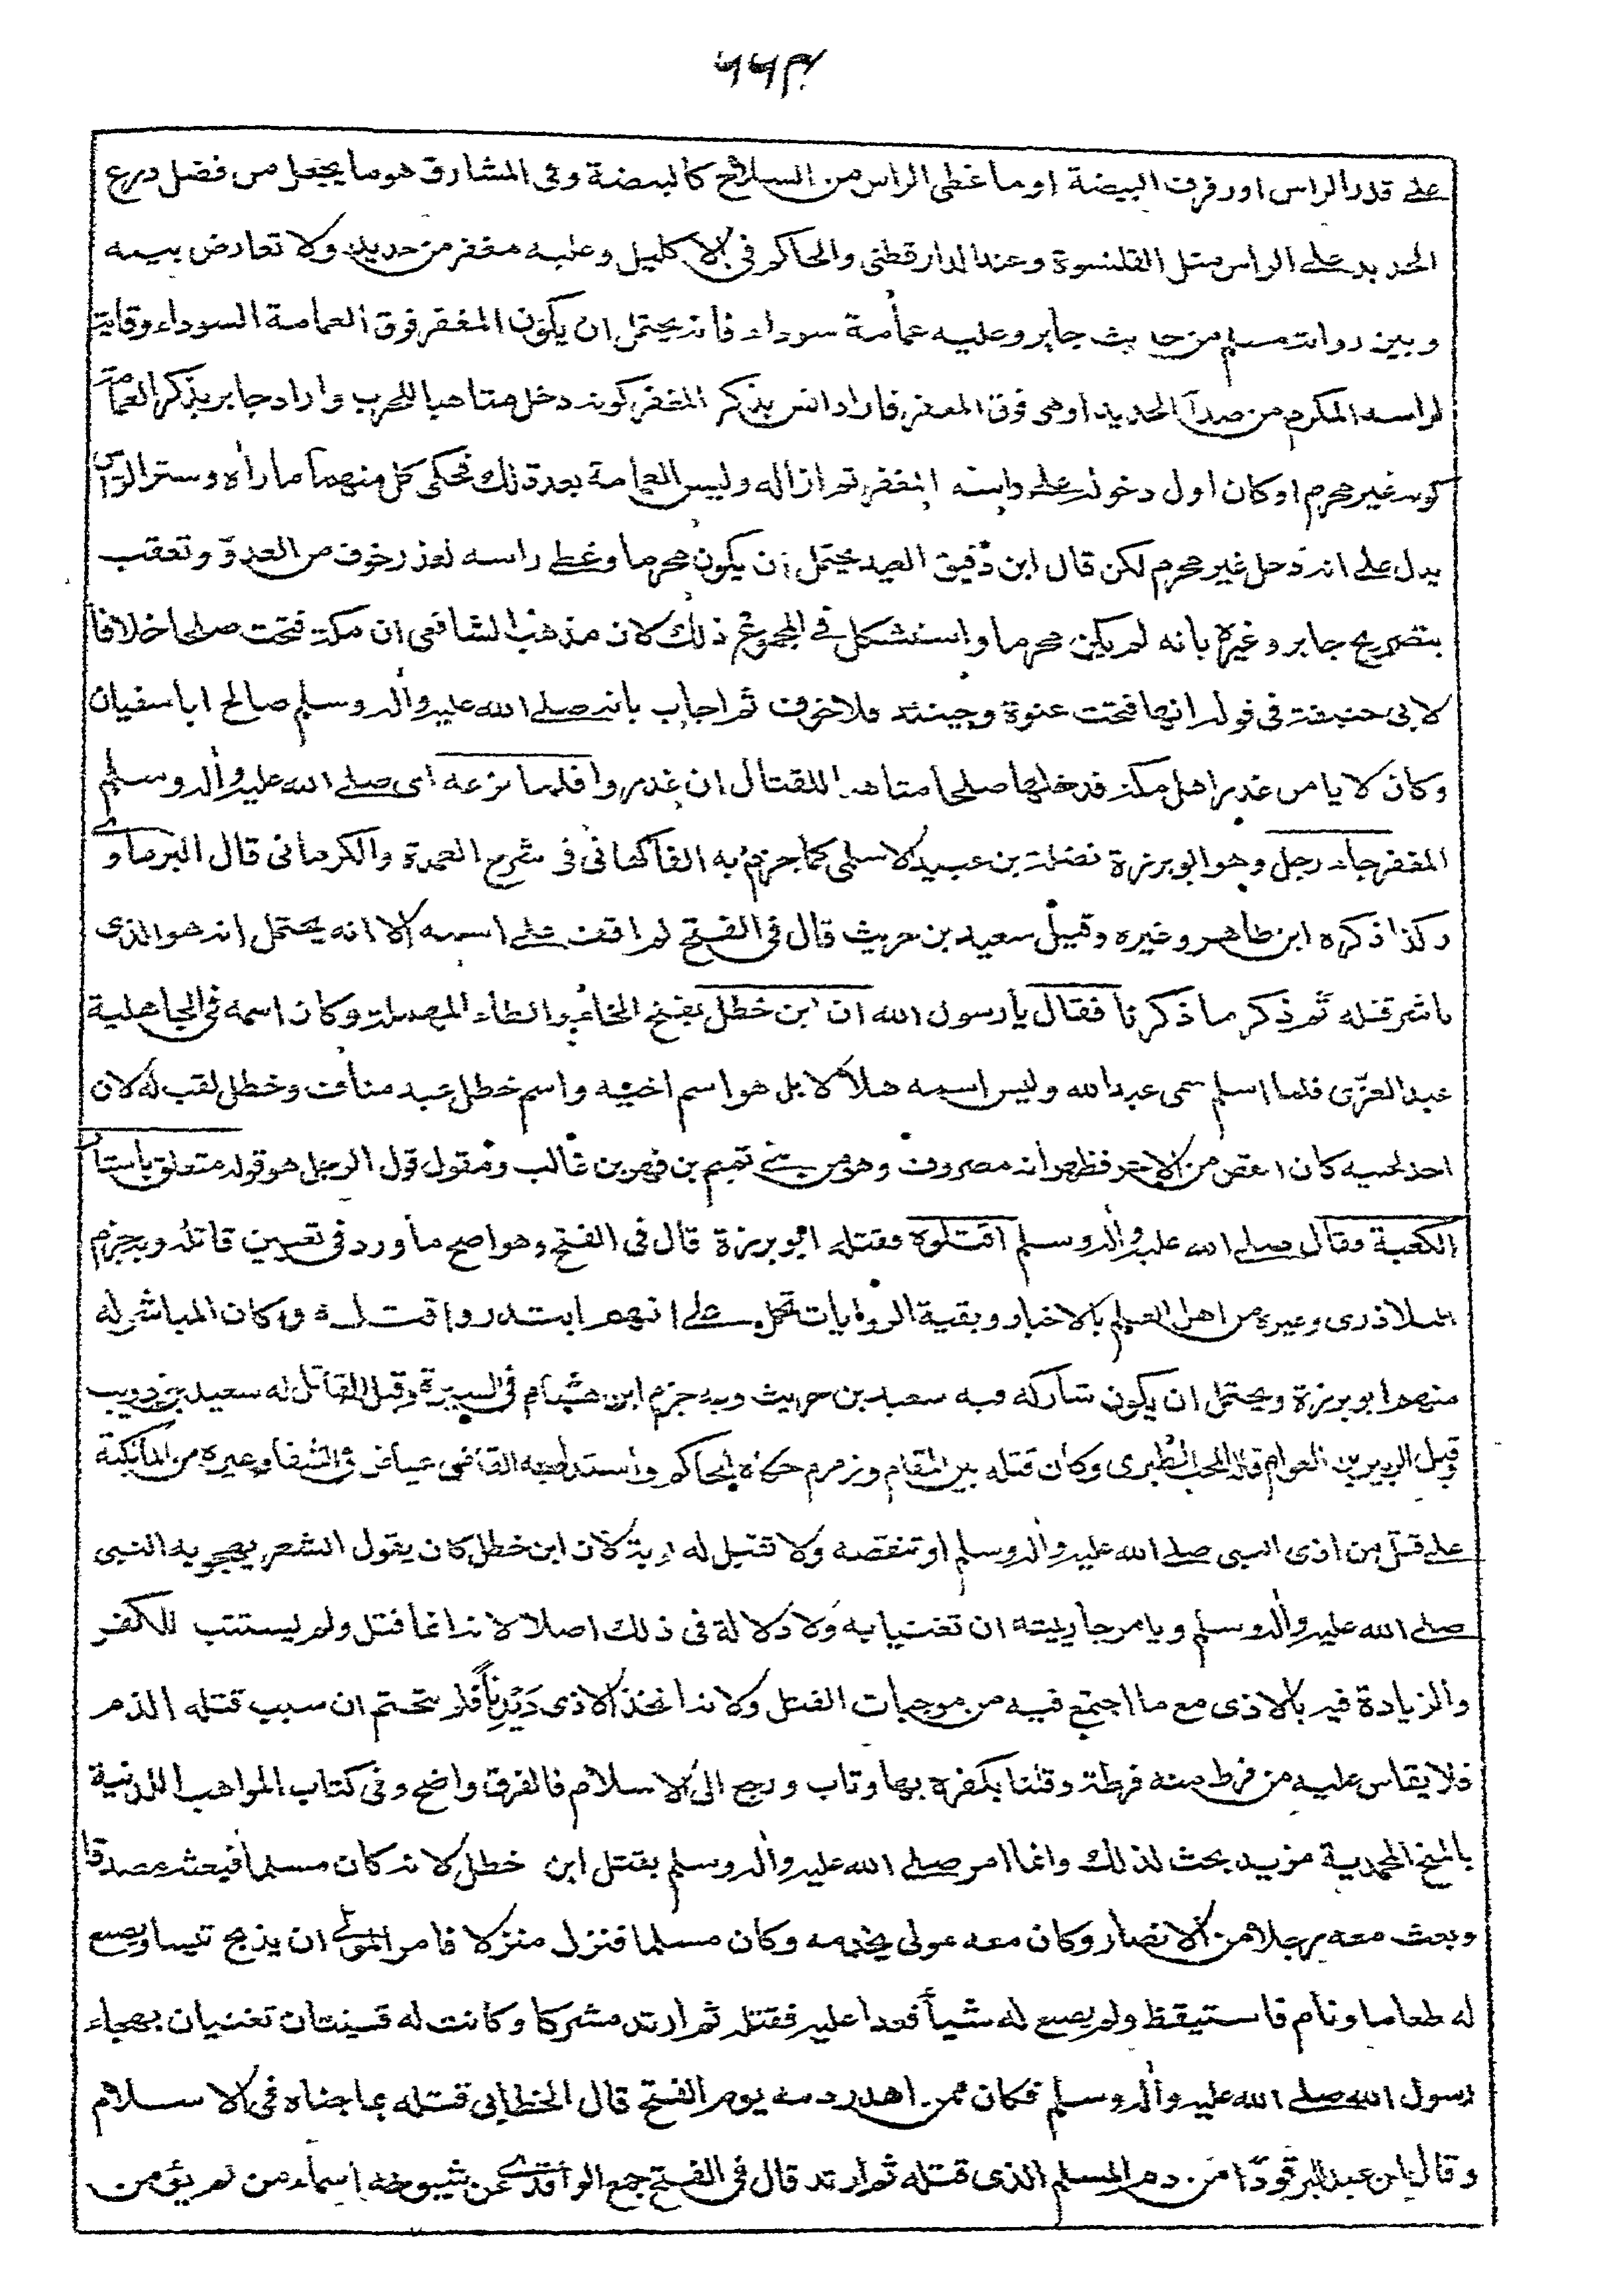 ٦٦٣
على قدر الراس او رفرف البيضة او ما غطى الراس من السلاح كالبيضة وفى المشارق هو ما يجعل من فضل درع
الحديد على الراس مثل القلنسوة وعند الدارقطنى والحاكم فى الاكليل وعليه مغفر من حديد ولا تعارض بينه
وبين رواية مسلم من حديث جابر وعليه عمامة سوداء فانه يحتمل ان يكون المغفر فوق العمامة السوداء وقاية
لراسه المكرم من صدأ الحديد او هى فوق المغفر فاراد انس بذكر المغفر كونه دخل متاهبا للحرب واراد جابر بذكر العمامة
كونه غير محرم او كان اول دخوله على راسه المغفر ثم ازاله ولبس العمامة بعد ذلك فحكى كل منهما ما رأه وستر الراس
يدل على انه دخل غير محرم لكن قال ابن دقيق العيد يحتمل ان يكون محرما وغطى راسه لعذر خوف من العدوّ وتعقب
بتصريح جابر وغيره بانه لم يكن محرما واستشكل فى المجموع ذلك لان مذهب الشافعى ان مكة فتحت صلحا خلافا
لابى حنيفة فى قوله انها فتحت عنوة وحينئذ فلا خوف ثم اجاب بانه صلى الله عليه وأله وسلم صالح ابا سفيان
وكان لا يامن غدر اهل مكة فدخلها صلحا متاهبا للقتال ان غدروا فلما نزعه اى صلى الله عليه وأله وسلم
المغفر جاء رجل وهو ابو برزة نضلة بن عبيد الاسلمى كما جزم به الفاكهانى فى شرح العمدة والكرمانى قال البرماوى
وكذا ذكره ابن طاهر وغيره وقيل سعيد بن حريث قال فى الفتح لم اقف على اسمه الا انه يحتمل انه هو الذى
باشر قتله ثم ذكر ما ذكرنا فقال يا رسول الله ان ابن خطل بفتح الخاء والطاء المهملة وكان اسمه فى الجاهلية
عبد العزّى فلما اسلم سمى عبد الله وليس اسمه هلالا بل هو اسم اخيه واسم خطل عبد مناف وخطل لقب له لان
احد لحييه كان انقص من الاخر فظهر انه مصروف وهو من بنى تميم بن فهر بن غالب ومقول قول الرجل هو قوله متعلق باستار
الكعبة فقال صلى الله عليه وأله وسلم اقتلوه فقتله ابو برزة قال فى الفتح وهو اصح ما ورد فى تعيين قاتله وبه جزم
البلاذرى وغيره من اهل العلم بالاخبار وبقية الروايات تحمل على انهم ابتدروا قتله وكان المباشر له
منهم ابو برزة ويحتمل ان يكون شاركه فيه سعيد بن حريث وبه جزم ابن هشام فى السيرة وقيل القاتل له سعيد بن ذويب
وقيل الزبير بن العوام قاله المحب الطبرى وكان قتله بين المقام وزمزم حكاه الحاكم واستدل به القاضى عياض فى الشفا وغيره من المالكية
على قتل من اذى النبى صلى الله عليه وأله وسلم او تنقصه ولا تقبل له توبة لان ابن خطل كان يقول الشعر يهجو به النبى
صلى الله عليه وأله وسلم ويامر جاريتيه ان تغنيا به ولا دلالة فى ذلك اصلا لانه انما قتل ولم يستتب للكفر
والزيادة فيه بالاذى مع ما اجتمع فيه من موجبات القتل ولانه اتخذ الاذى دَيْدَناً فلم يتحتم ان سبب قتله الذم
فلا يقاس عليه من فرط منه فرطة وقلنا بكفره بها وتاب ورجع الى الاسلام فالفرق واضح وفى كتاب المواهب اللدنية
بالمنح المحمدية مزيد بحث لذلك وانما امر صلى الله عليه وأله وسلم بقتل ابن خطل لانه كان مسلما فبعثه مصدقا
وبعث معه رجلا من الانصار وكان معه مولى يخدمه وكان مسلما فنزل منزلا فامر المولى ان يذبح تيسا ويصنع
له طعاما ونام فاستيقظ ولم يصنع له شيأ فعدا عليه فقتله ثم ارتد مشركا وكانت له قينتان تغنيان بهجاء
رسول الله صلى الله عليه وأله وسلم فكان ممن اهدر دمه يوم الفتح قال الخطابى قتله بما جناه فى الاسلام
وقال ابن عبد البر قودًا من دم المسلم الذى قتله ثم ارتد قال فى الفتح جمع الواقدى عن شيوخه اسماء من لم يؤمن